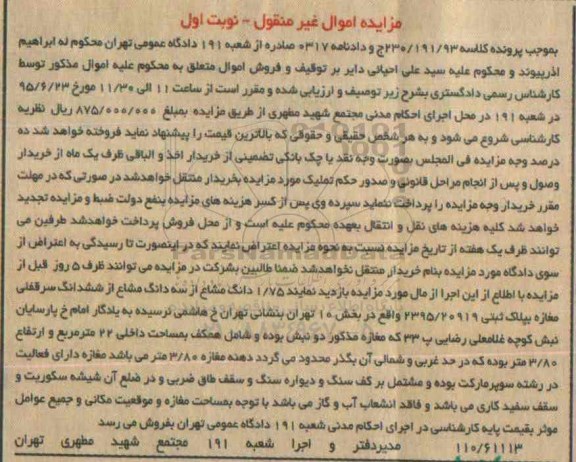 مزایده اموال غیر منقول - نوبت اول
بموجب پرونده کلاسه ۲۳۰/۱۹۱/۹۳ج و دادنامه ۰۳۱۷ صادره از شعبه ۱۹۱ دادگاه عمومی تهران محکوم له ابراهیم
آذرپیوند و محکوم علیه سید علی احیائی دایر بر توقیف و فروش اموال متعلق به محکوم علیه اموال مذکور توسط
کارشناس رسمی دادگستری بشرح زیر توصیف و ارزیابی شده و مقرر است از ساعت ۱۱ الی ۱۱/۳۰ مورخ ۹۵/۶/۲۳
در شعبه ۱۹۱ در محل اجرای احکام مدنی مجتمع شهید مطهری از طریق مزایده بمبلغ ۸۷۵/۰۰۰/۰۰۰ ریال نظریه
کارشناسی شروع می شود و به هر شخص حقیقی و حقوقی که بالاترین قیمت را پیشنهاد نماید فروخته خواهد شد ده
درصد وجه مزایده فی المجلس بصورت وجه نقد یا چک بانکی تضمینی از خریدار اخذ و الباقی ظرف یک ماه از خریدار
وصول و پس از انجام مراحل قانونی و صدور حکم تملیک مورد مزایده بخریدار منتقل خواهدشد در صورتی که در مهلت
مقرر خریدار وجه مزایده را پرداخت ننماید سپرده وی پس از کسر هزینه های مزایده بنفع دولت ضبط و مزایده تجدید
خواهد شد کلیه هزینه های نقل و انتقال بعهده محکوم علیه است و از محل فروش پرداخت خواهدشد طرفین می
توانند ظرف یک هفته از تاریخ مزایده نسبت به نحوه مزایده اعتراض نمایند که در اینصورت تا رسیدگی به اعتراض از
سوی دادگاه مورد مزایده بنام خریدار منتقل نخواهدشد ضمنا طالبین بشرکت در مزایده می توانند ظرف ۵ روز قبل از
مزایده با اطلاع از این اجرا از مال مورد مزایده بازدید نمایند ۱/۷۵ دانگ مشاع از سه دانگ مشاع از ششدانگ سرقفلی
مغازه بپلاک ثبتی ۲۳۹۵/۲۰۹۱۹ واقع در بخش ۱۰ تهران بنشانی تهران خ هاشمی نرسیده به یادگار امام خ پارسایان
نبش کوچه غلامعلی رضایی پ ۳۳ که مغازه مذکور دو نبش بوده و شامل همکف بمساحت داخلی ۲۲ مترمربع و ارتفاع
۳/۸۰ متر بوده که در حد غربی و شمالی آن بگذر محدود می گردد دهنه مغازه ۳/۸۰ متر می باشد مغازه دارای فعالیت
در رشته سوپرمارکت بوده و مشتمل بر کف سنگ و دیواره سنگ و سقف طاق ضربی و در ضلع آن شیشه سکوریت و
سقف سفید کاری می باشد و فاقد انشعاب آب و گاز می باشد با توجه بمساحت مغازه و موقعیت مکانی و جمیع عوامل
موثر بقیمت پایه کارشناسی در اجرای احکام مدنی شعبه ۱۹۱ دادگاه عمومی تهران بفروش می رسد
۱۱۰/۶۱۱۱۳ مدیردفتر و اجرا شعبه ۱۹۱ مجتمع شهید مطهری تهران